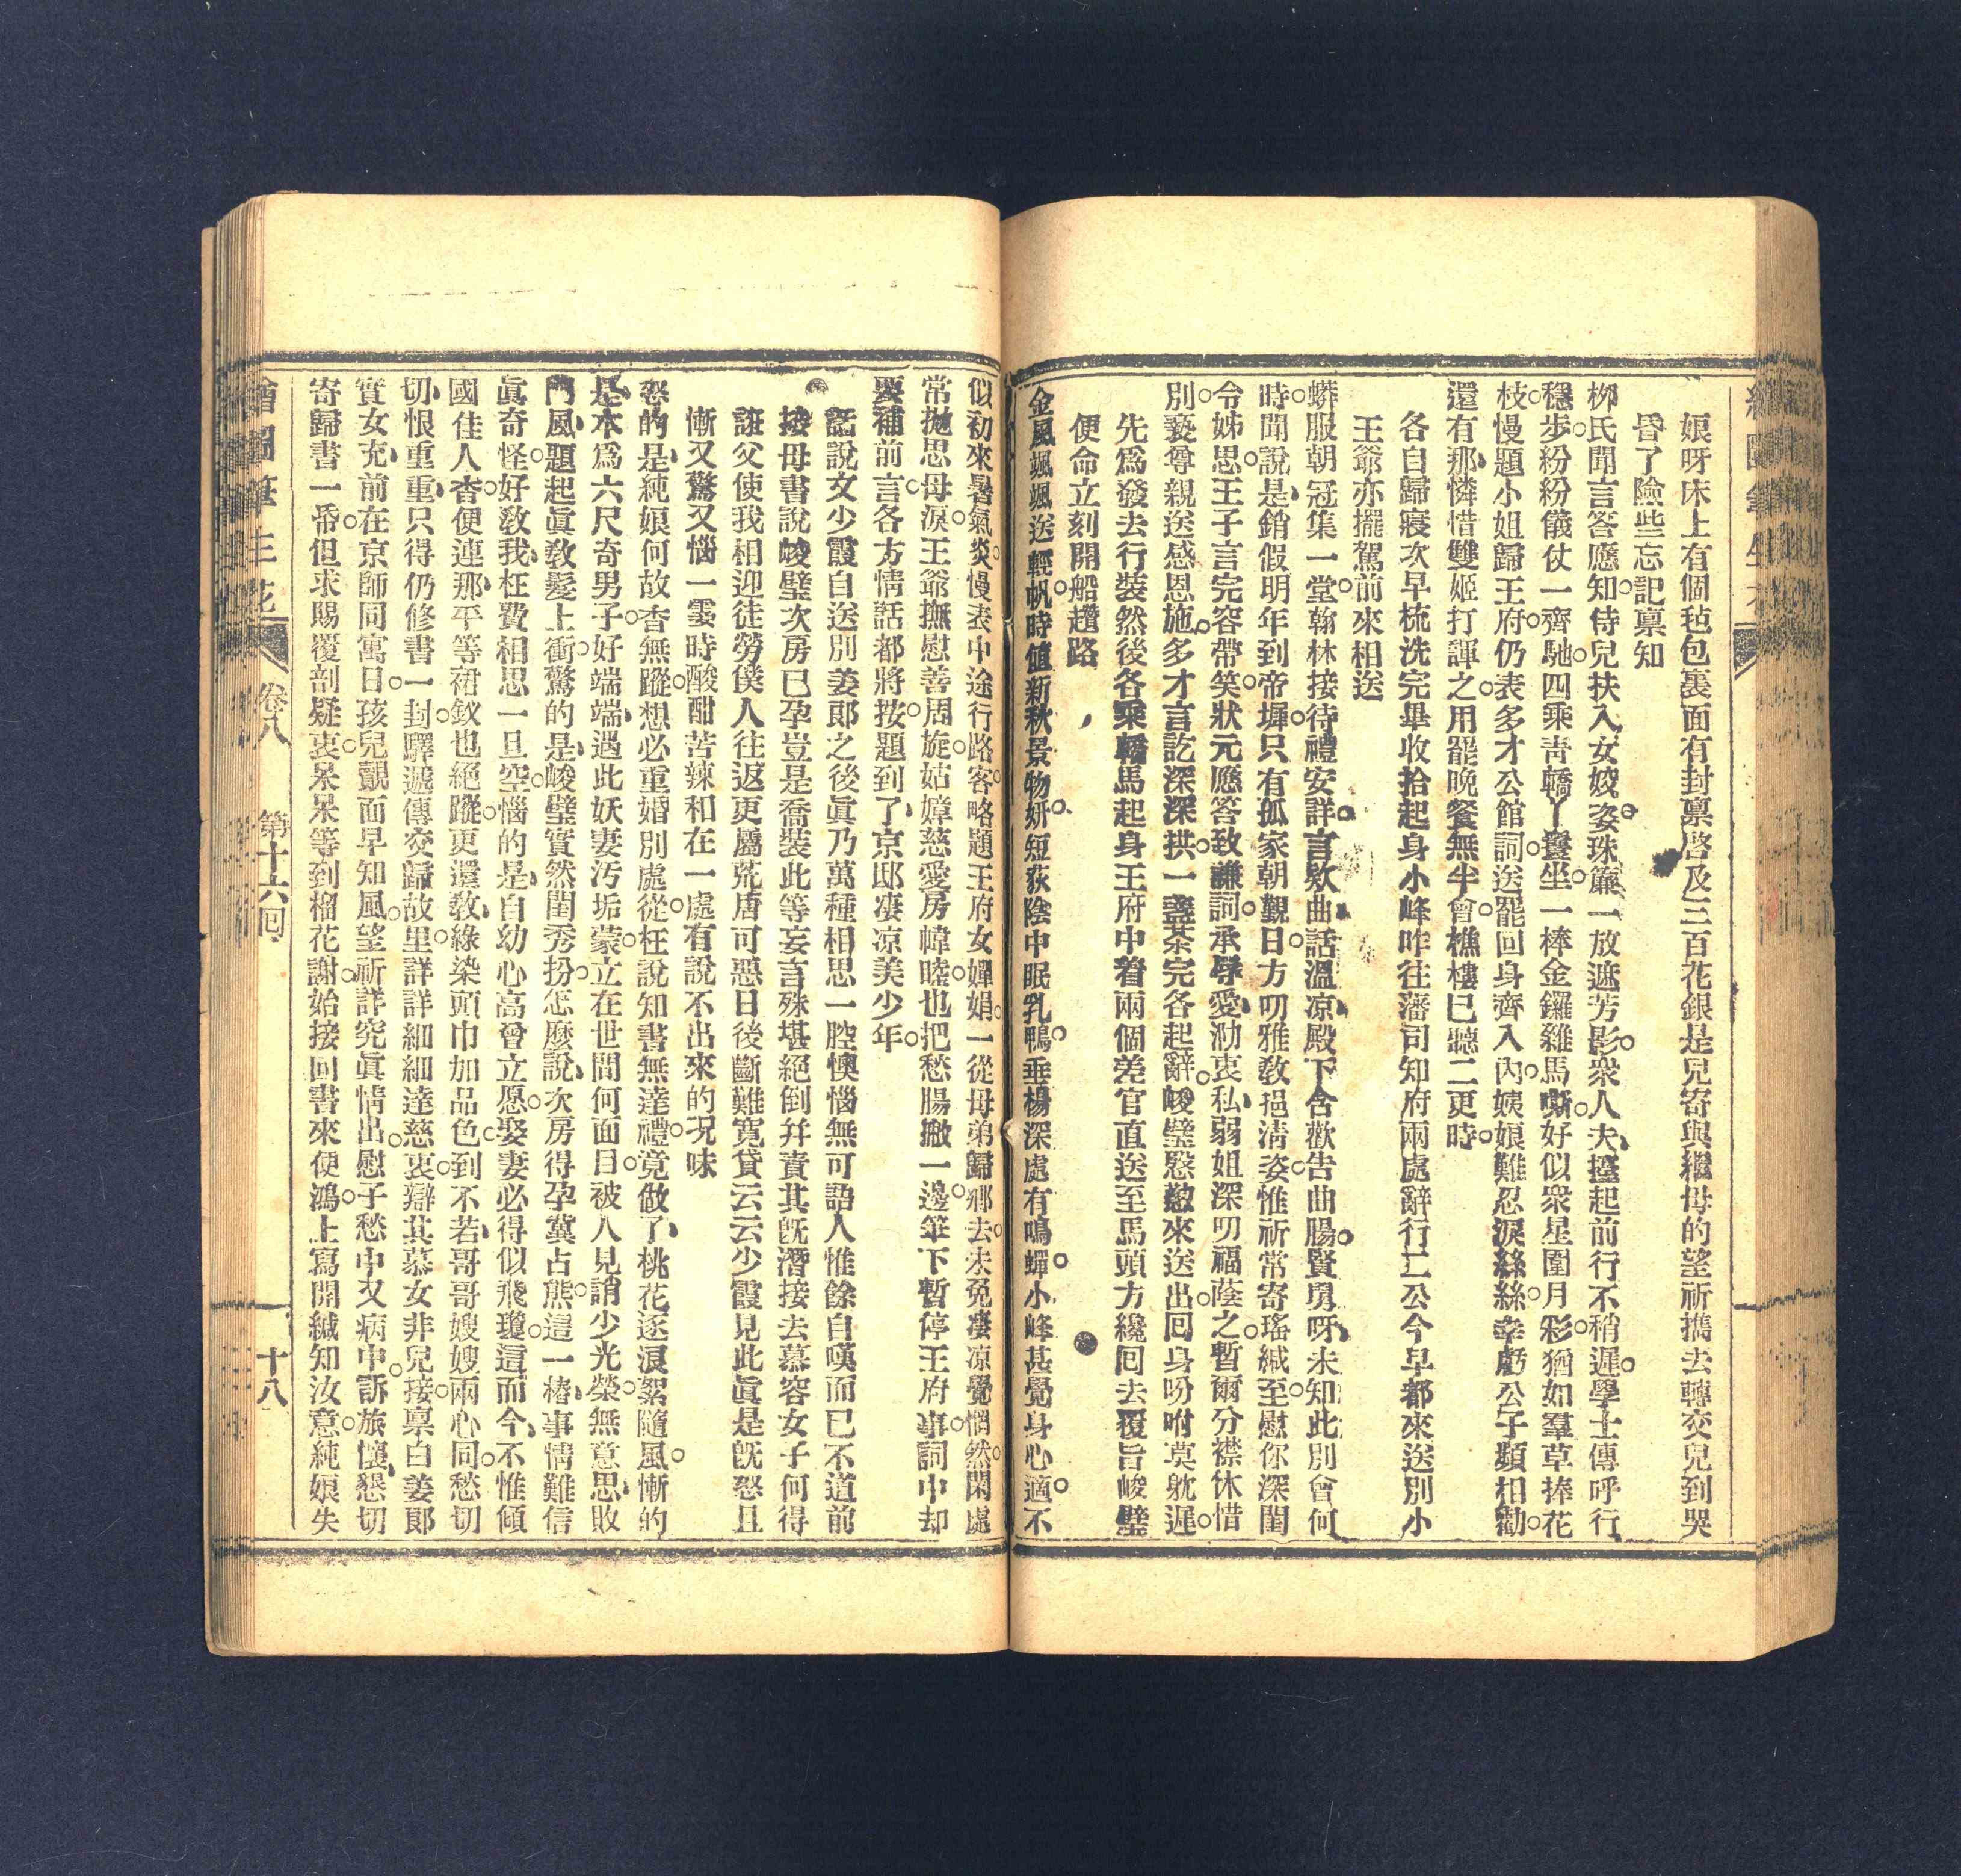 娘呀床上有個毡包裏面有封禀啓及三百花銀是兒寄與繼母的望祈携去轉交兒到哭
昏了險些忘記禀知
栁氏聞言答應知侍兒扶入女嬌姿珠簾一放遮芳影衆人夫擡起前行不稍遲學士傳呼行
穩步紛紛儀仗一齊馳四乘靑轎丫鬟坐一棒金鑼雜馬嘶好似衆星圍月彩猶如羣草捧花
枝慢題小姐歸王府仍表多才公館詞送罷回身齊入內姨娘難忍淚絲絲幸虧公子頻相勸
還有那憐惜雙姬打諢之用罷晚餐無半會樵樓已聽二更時
各自歸寢次早梳洗完畢收拾起身小峰昨往藩司知府兩處辭行二公今早都來送別小
王爺亦擺駕前來相送
蟒服朝冠集一堂翰林接待禮安詳言欵曲話溫凉殿下含歡告曲腸賢舅呀未知此別會何
時聞說是銷假明年到帝墀只有孤家朝覲日方叨雅敎挹淸姿惟祈常寄瑤緘至慰你深閨
令姊思王子言完容帶笑狀元應答致謙詞承辱愛泐衷私弱姐深叨福蔭之暫爾分襟休惜
別褻尊親送感恩施多才言訖深深拱一盞茶完各起辭峻璧慇懃來送出回身吩咐莫躭遲
先爲發去行裝然後各乘轎馬起身王府中着兩個差官直送至馬頭方纔回去覆旨峻璧
便命立刻開船趲路
金風颯颯送輕帆時値新秋景物妍短荻陰中眠乳鴨垂楊深處有鳴蟬小峰甚覺身心適不
似初來暑氣炎慢表中途行路客略題王府女嬋娟一從母弟歸鄕去未免凄凉覺惘然閑處
常抛思母淚王爺撫慰善周旋姑嫜慈愛房幃睦也把愁腸撇一邊筆下暫停王府事詞中却
要補前言各方情話都將按題到了京邸凄凉美少年
話說文少霞自送別姜郞之後眞乃萬種相思一腔懊惱無可語人惟餘自嘆而已不道前
接母書說峻璧次房已孕豈是喬裝此等妄言殊堪絕倒幷責其旣潛接去慕容女子何得
誑父使我相迎徒勞僕人往返更屬荒唐可惡日後斷難寬貸云云少霞見此眞是旣怒且
慚又驚又惱一霎時酸甜苦辣和在一處有說不出來的况味
怒的是純娘何故杳無蹤想必重婚別處從枉說知書無達禮竟做了桃花逐浪絮隨風慚的
是本爲六尺奇男子好端端遇此妖妻汚垢蒙立在世間何面目被人見誚少光榮無意思敗
門風題起眞敎髮上衝驚的是峻璧實然閨秀扮怎麼說次房得孕冀占熊這一樁事情難信
眞奇怪好敎我枉費相思一旦空惱的是自幼心高曾立愿娶妻必得似飛瓊這而今不惟傾
國佳人杳便連那平等裙釵也絕蹤更還敎綠染頭巾加品色到不若哥哥嫂嫂兩心同愁切
切恨重重只得仍修書一封驛遞傳交歸故里詳詳細細達慈衷辯其慕女非兒接禀白姜郞
實女充前在京師同寓日孩兒覿面早知風望祈詳究眞情出慰子愁中又病中訴旅懷懇切
寄歸書一帋但求賜覆剖疑衷呆呆等到榴花謝始接回書來便鴻上寫開緘知汝意純娘失
繪圖筆生花 卷八 第十六回 十八